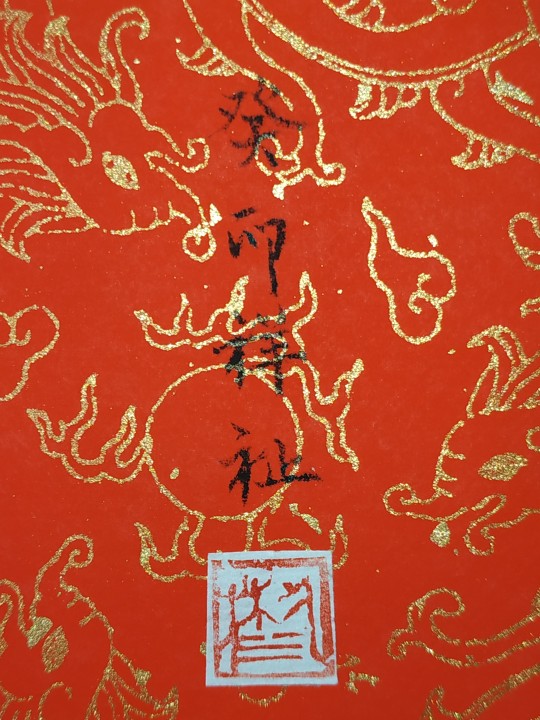 癸卯祥祉